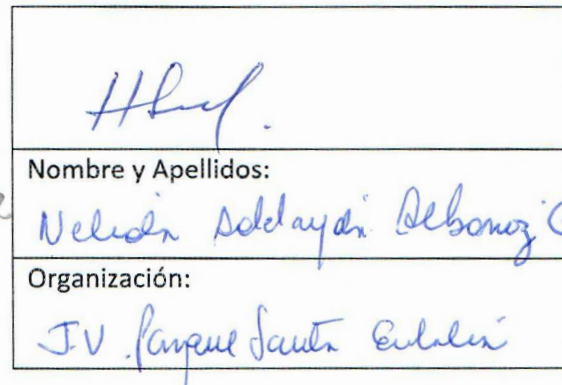 Nombre y Apellidos:
Nelida Adelayda Albornoz
Organización:
J.V. Parque Santa Eulalia